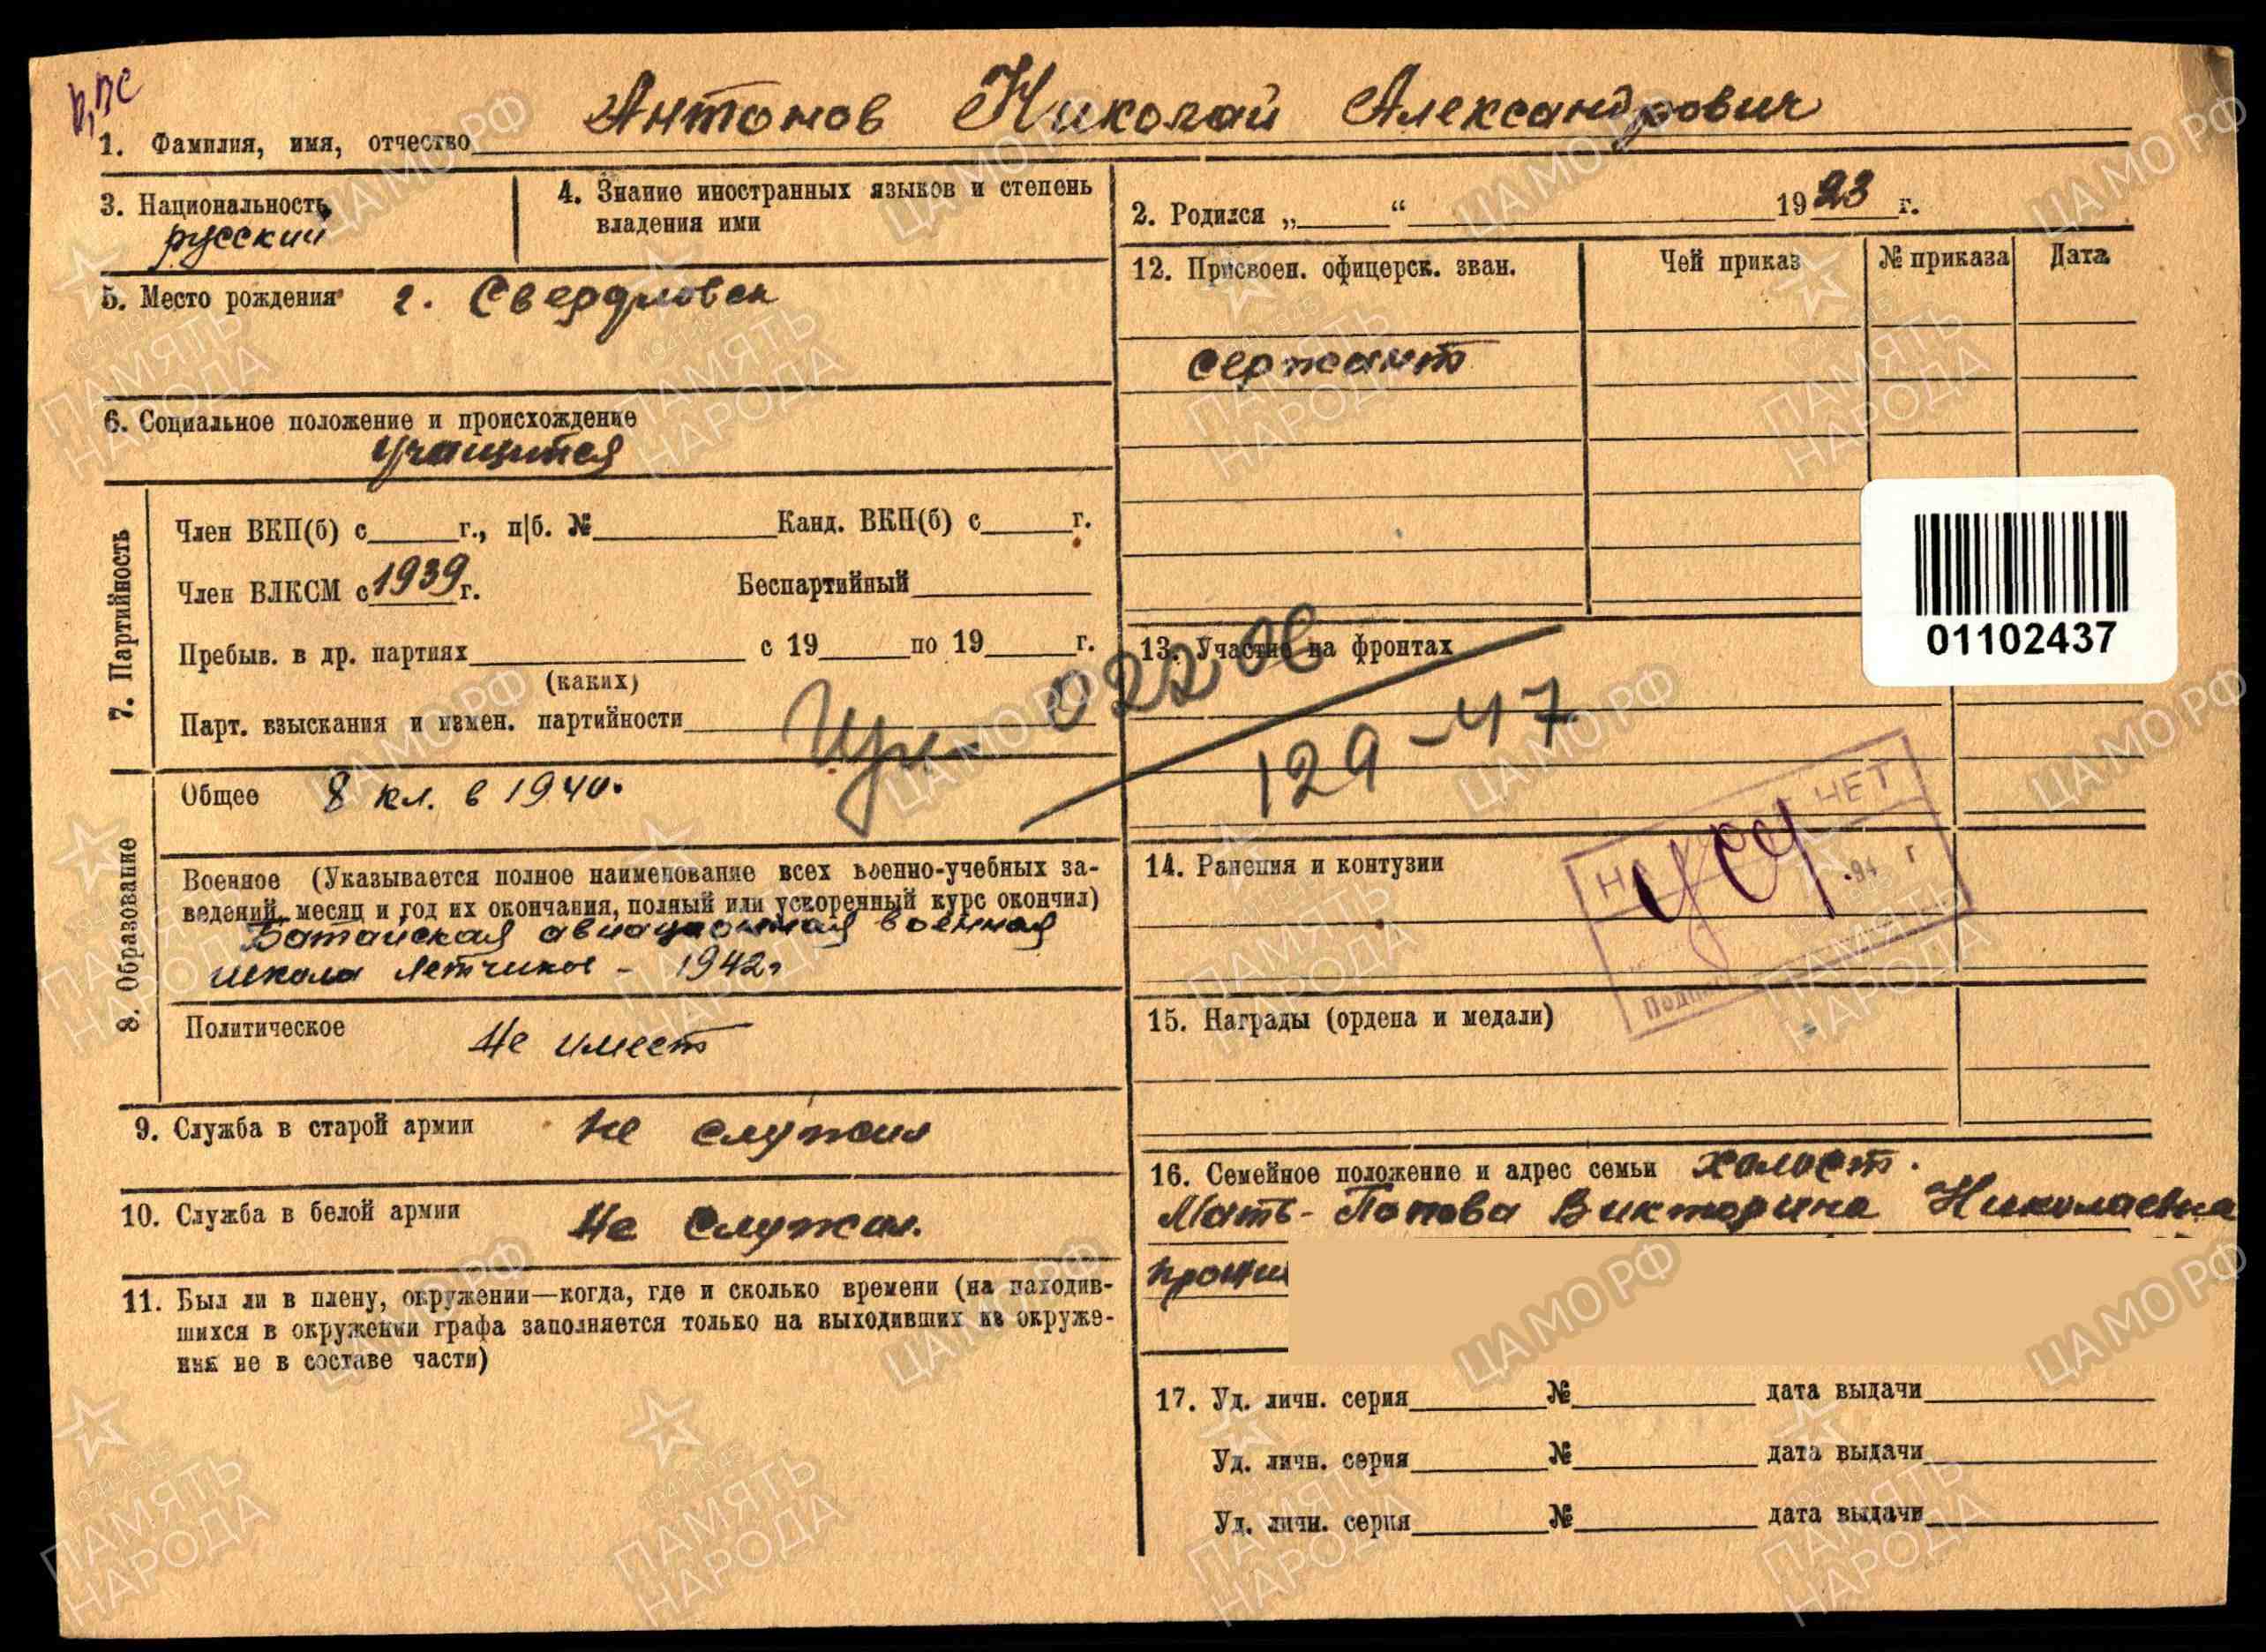 ВВС
1. Фамилия, имя, отчество Антонов Николай Александрович
3. Национальность русский
4. Знание иностранных языков и степень
владения ими
2. Родился „ “ 1923 г.
5. Место рождения г. Свердловск
12. Присвоен. офицерск. зван. Чей приказ № приказа Дата
сержант
6. Социальное положение и происхождение
учащийся
7. Партийность
Член ВКП(б) с г., п/б. № Канд. ВКП(б) с г.
Член ВЛКСМ с 1939 г. Беспартийный
Пребыв. в др. партиях с 19 по 19 г.
(каких)
Парт. взыскания и измен. партийности
01102437
13. Участие на фронтах
02206
129-47
8. Образование
Общее 8 кл. в 1940.
Военное (Указывается полное наименование всех военно-учебных за-
ведений, месяц и год их окончания, полный или ускоренный курс окончил)
Батайская авиационная военная
школа летчиков - 1942г
Политическое Не имеет
14. Ранения и контузии
15. Награды (ордена и медали)
9. Служба в старой армии Не служил
10. Служба в белой армии Не служил.
11. Был ли в плену, окружении—когда, где и сколько времени (на находив-
шихся в окружении графа заполняется только на выходивших из окруже-
ния не в составе части)
16. Семейное положение и адрес семьи холост.
Мать - Попова Викторина Николаевна
17. Уд. личн. серия № дата выдачи
Уд. личн. серия № дата выдачи
Уд. личн. серия № дата выдачи
ЦАМО РФ
1941-1945
ПАМЯТЬ
НАРОДА